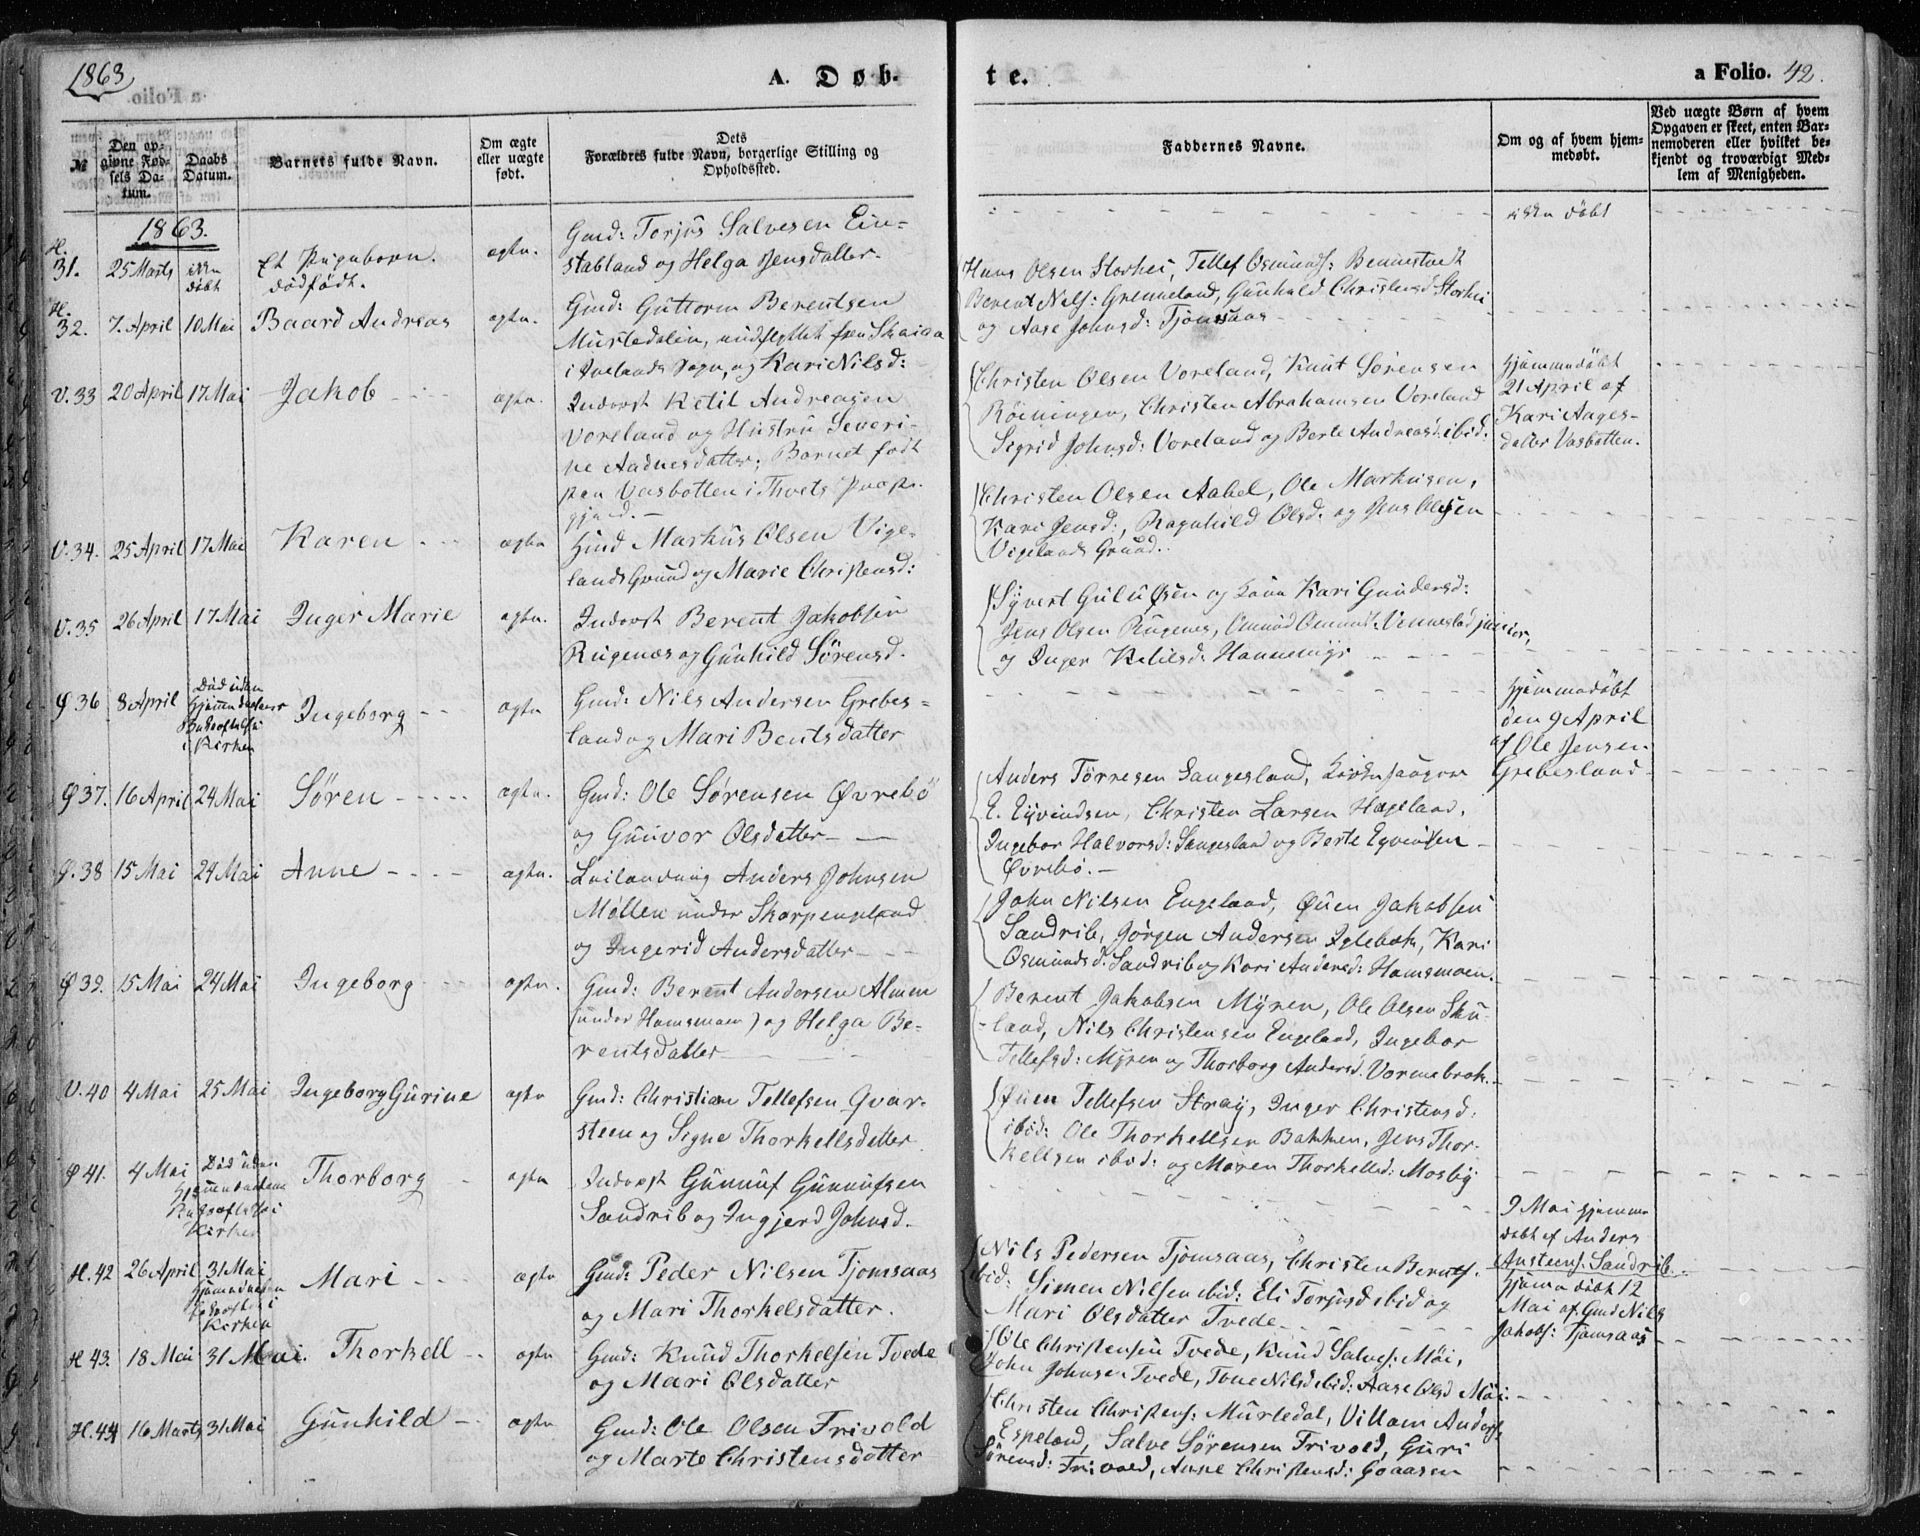 1863
A. Døb-
te.
a Folio. 42.
№
Den op-
givne Fød-
sels Da-
tum.
Daabs
Datum.
Barnets fulde Navn.
Om ægte
eller uægte
født.
Dets
Forældres fulde Navn, borgerlige Stilling og
Opholdssted.
Faddernes Navne.
Om og af hvem hjem-
medøbt.
Ved uægte Børn af hvem
Opgaven er skeet, enten Bar-
nemoderen eller hvilket be-
kjendt og troværdigt Med-
lem af Menigheden.
1863.
H.
31. 25 Marts ikke
døbt
Et Pigebarn
dødfødt.
ægte.
Gmd: Torjus Salvesen Ein-
stabland og Helga Jensdatter.
ikke døbt
H.
32. 7. April 10 Mai Baard Andreas ægte.
Gmd: Guttorm Berentsen
Musledalen, indflyttet fra Skaiaa
i Ivelands Sogn, og Kari Nilsd:
Hans Olsen Storhei, Tellef Osmunds: Bennestvedt
Berent Nels: Grenneland, Gunhild Christensd Storhei
og Aase Johnsd: Tjomsaas
V. 33 20 April 17 Mai Jakob ægte.
Inderst Ketil Andreasen
Voreland og Hustru Severi-
ne Aadnesdatter; Barnet født
paa Vasbotten i Thvets Præste-
gjeld.
Christen Olsen Voreland, Knut Sørensen
Röiningen, Christen Abrahamsen Voreland
Sigrid Johnsd: Voreland og Berte Andreasd. ibid.
Hjemmedøbt
21 April af
Kari Aages-
datter Vasbotten.
V. 34. 25 April 17 Mai Karen ægte
Hmd Markus Olsen Vige-
lands Grund og Marie Christensd:
Christen Olsen Aabel, Ole Markusen,
Kari Jensd:, Ragnhild Olsd. og Jens Olsen
Vigelands Grund.
V. 35 26 April 17 Mai Inger Marie ægte.
Inderst Berent Jakobsen
Rugenæs og Gunhild Sörensd.
Syvert Gulufsen og Kone Kari Gundersd:
Jens Olsen Rugenes, Omund Omunds: Vennesland junior,
og Inger Ketilsd: Honnemyr
Ø 36 8 April Død uden
Hjemmedaabens
Bekræftelse
i Kirken
Ingeborg ægte
Gmd: Nils Andersen Grebes-
land og Mari Bentsdatter
Hjemmedøbt
den 9 April
af Ole Jensen
Grebesland
Ø 37. 16 April 24 Mai Søren ægte.
Gmd: Ole Sørensen Øvrebö
og Gunvor Olsdatter
Anders Törresen Sangesland, Kirkesanger
E. Eyvindsen, Christen Larsen Hægeland,
Ingebor Halvorsd: Sangesland og Berte Eyvindsen
Øvrebö.
Ø. 38 15 Mai 24 Mai Anne ægte.
Leilænding Anders Johnsen
Møllen under Skarpengeland
og Ingerid Andersdatter
John Nilsen Engeland, Øuen Jakobsen
Sandrib, Jörgen Andersen Iglebæk, Kari
Osmundsd. Sandrib og Kari Andersd: Homsmoen.
Ø 39. 15 Mai 24 Mai Ingeborg ægte.
Gmd: Berent Andersen Almen
(under Homsmoen) og Helga Be-
rentsdatter
Berent Jakobsen Myren, Ole Olsen Sku-
land, Nils Christensen Engeland, Ingebor
Tellefsd: Myren og Thorborg Andersd. Vormebrok.
V. 40 4 Mai 25 Mai Ingeborg Gurine ægte
Gmd: Christian Tellefsen Qvar-
steen og Signe Thorkellsdatter
Øuen Tellefsen Stray, Inger Christensd:
ibid: Ole Thorkellsen Bakken, Jens Thor-
kellsen ibid: og Maren Thorkellsd: Mosby
Ø 41. 4 Mai Død uden
Hjemmedaabens
Bekræftelse i
Kirken
Thorborg ægte
Inderst Gunnuf Gunnufsen
Sandrib og Ingjerd Johnsd.
9 Mai hjemme
døbt af Anders
Austeens: Sandrib.
H. 42 26 April 31 Mai
Hjemmedaaben
bekræftet i
Kirken
Mari ægte
Gmd: Peder Nilsen Tjomsaas
og Mari Thorkelsdatter.
Nils Pedersen Tjomsaas, Christen Bernts.
ibid: Simen Nilsen ibid: Eli Torjusd ibid og
Mari Olsdatter Tvede
Hjemmedøbt 12
Mai af Gmd Nils
Jakobs: Tjomsaas
H 43. 18 Mai 31 Mai. Thorkell ægte
Gmd: Knud Thorkelsen Tvede
og Mari Olsdatter
Ole Christensen Tvede, Knud Salves: Möi,
John Johnsen Tvede, Tone Nilsd ibid: Aase Olsd Möi
H. 44 16 Marts 31 Mai Gunhild ægte
Gmd: Ole Olsen Frivold
og Marte Christensdatter
Christen Christens: Musledal, Villam Anders.
Espeland, Salve Sörensen Frivold, Guri
Sörensd: Frivold, Anne Christensd: Goaasen